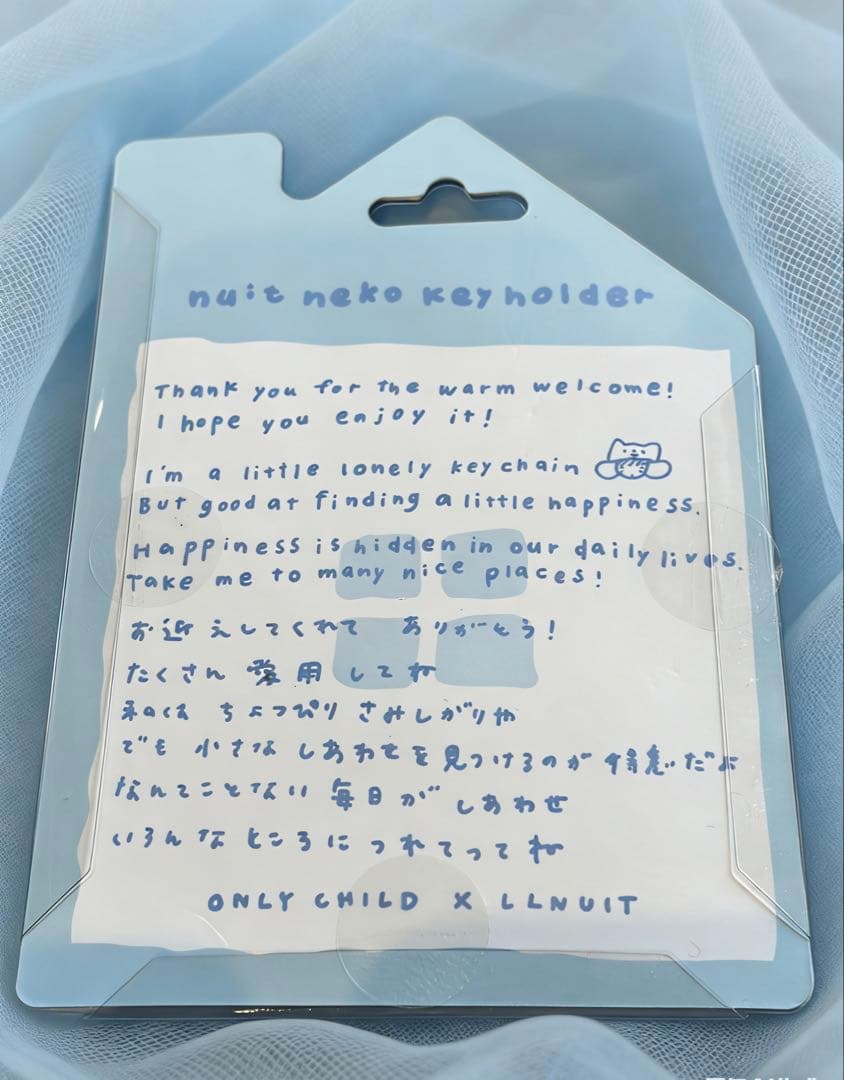 nuit neko keyholder
Thank you for the warm welcome!
I hope you enjoy it!
I'm a little lonely keychain
But good at finding a little happiness.
Happiness is hidden in our daily lives.
Take me to many nice places!
お迎えしてくれて ありがとう!
たくさん 愛用 してね
ちょっぴり さみしがりや
でも 小さな しあわせを見つけるのが 得意だよ
なんてことない 毎日が しあわせ
いろんな ところに つれてってね
ONLY CHILD X LLNUIT